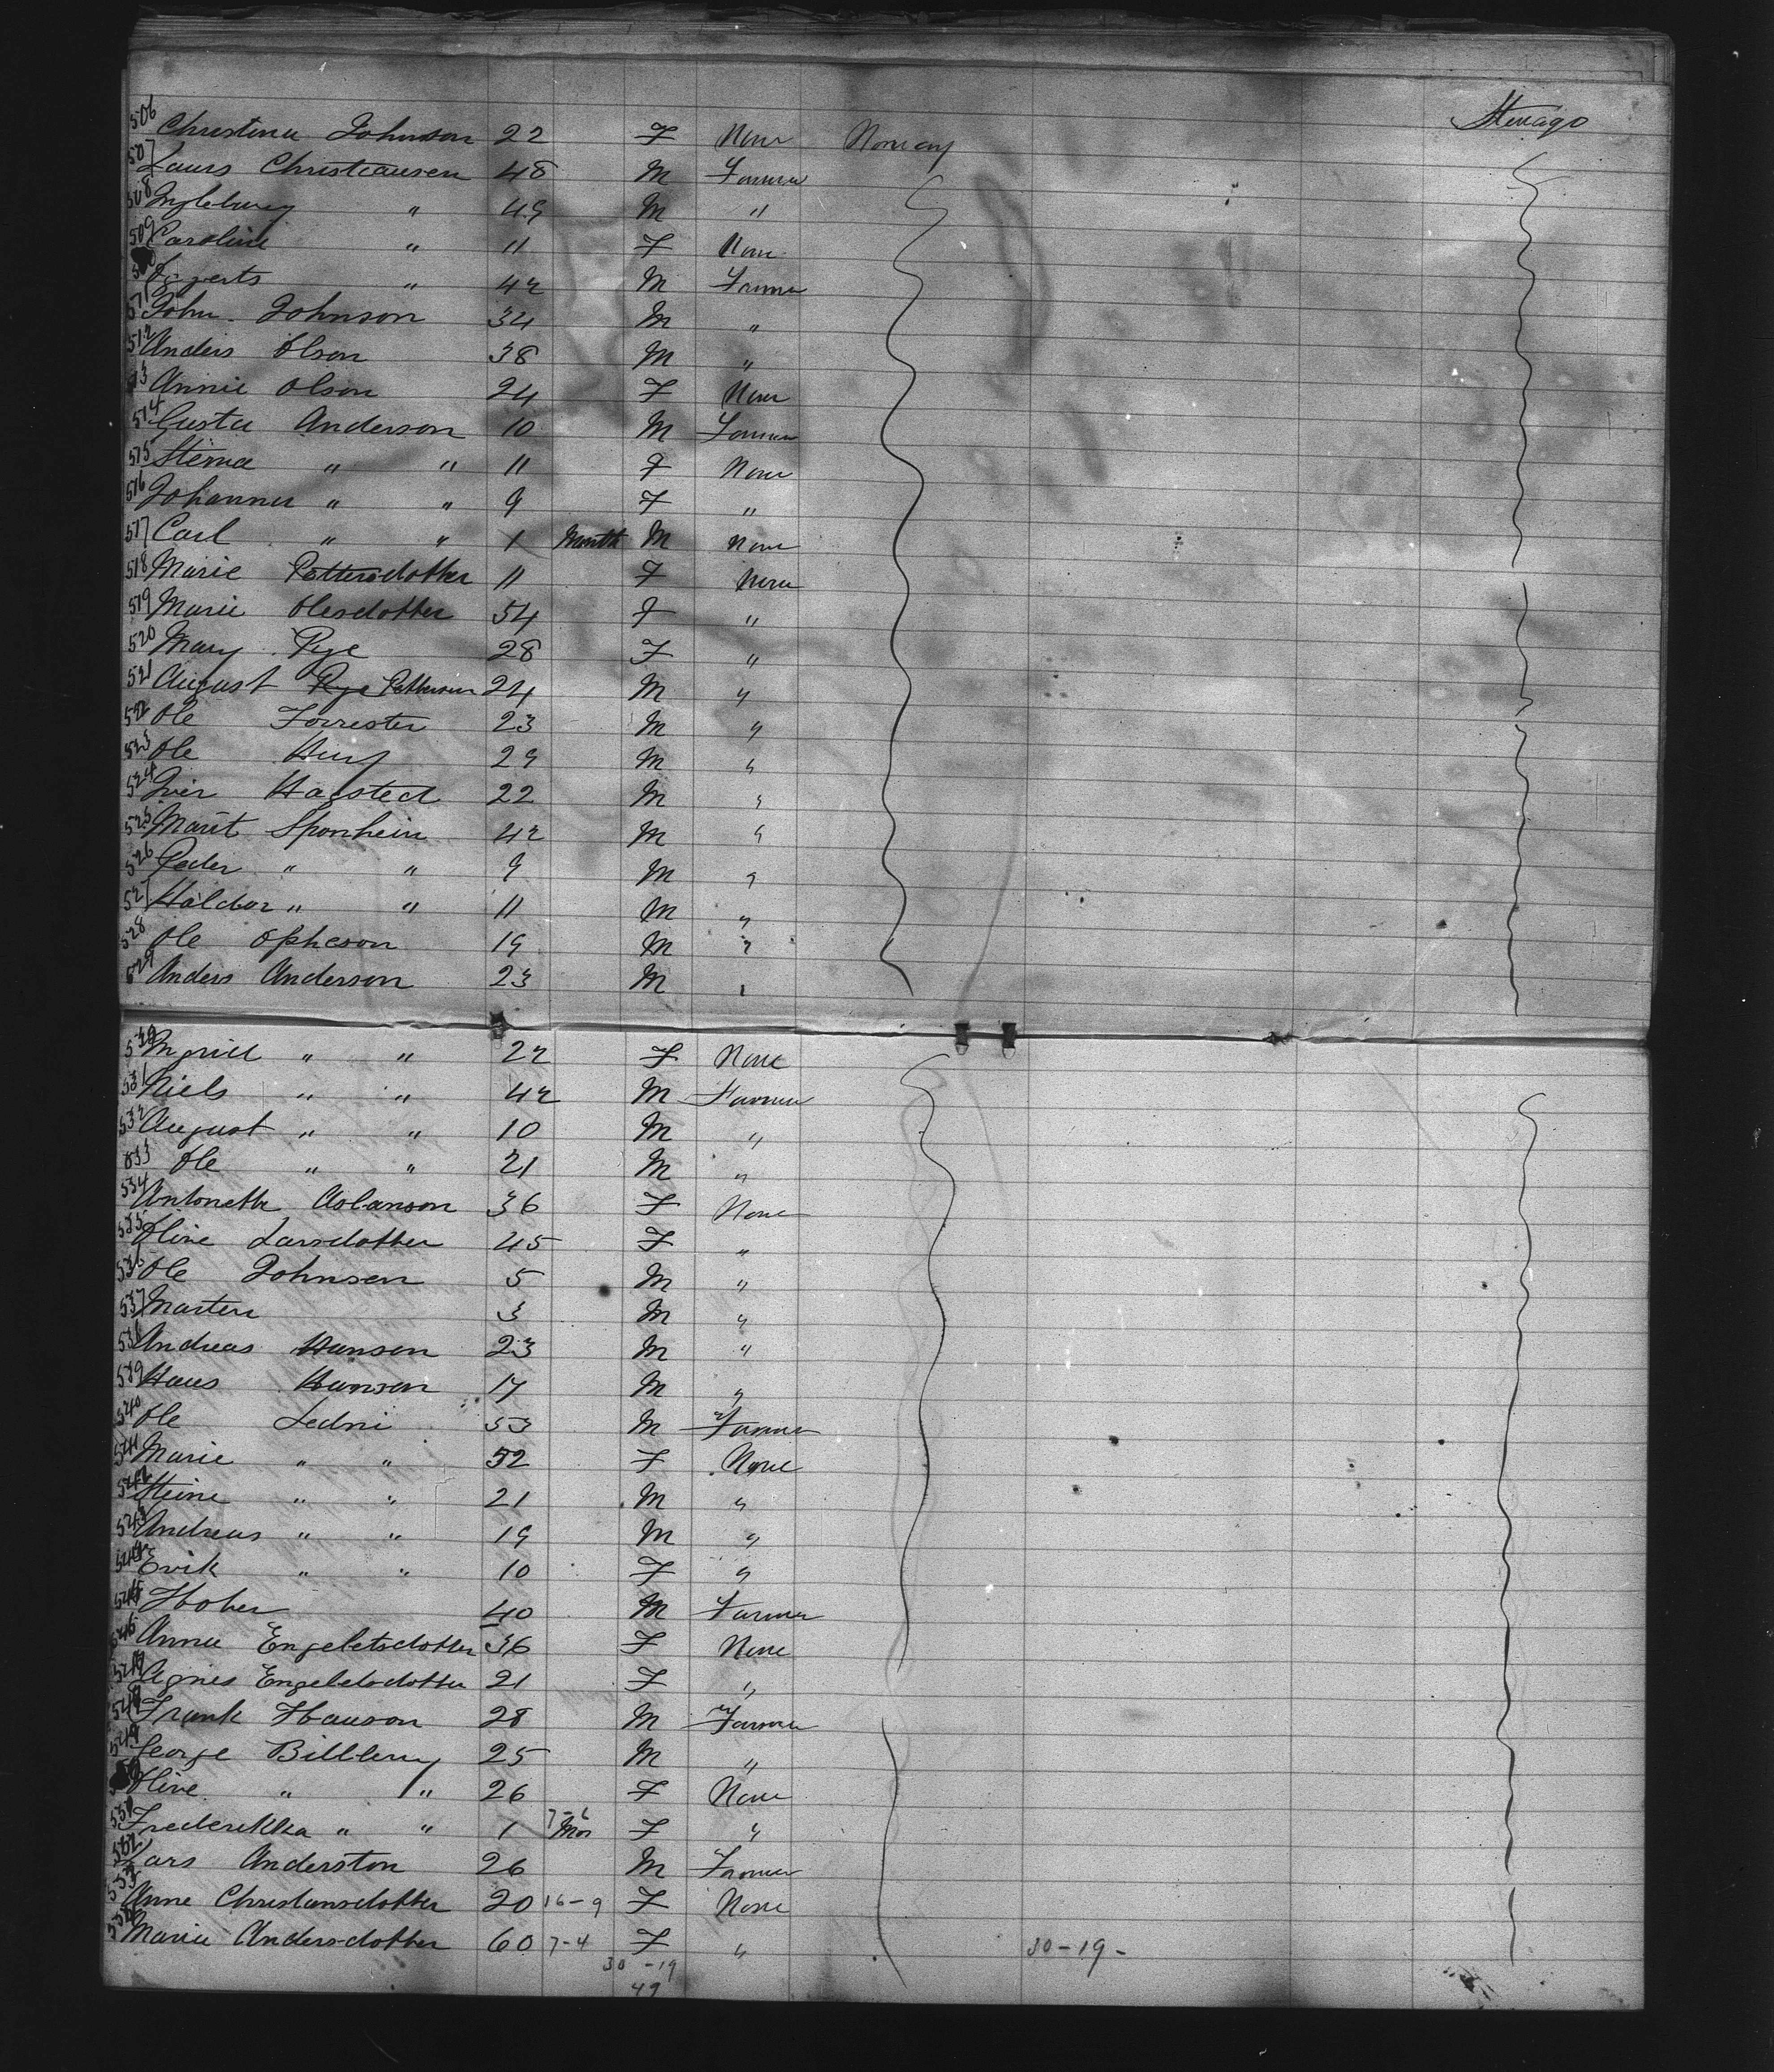 506 Christina Johnson 22 F None Norway Sterrage
507 Laurs Christiausen 48 M Farmer
508 Ingleburg " 49 M "
509 Caroline " 11 F None
" 42 M Farmer
511 John Johnson 34 M "
512 Anders Olson 38 M "
513 Annie Olson 24 F None
514 Gusta Anderson 10 M Farmer
515 Stema " " 11 F None
516 Johanna " " 9 F "
517 Carl " " 1 Month M None
518 Marie Pettersdotter 11 F None
519 Marie Olesdotter 54 F "
520 Mary Rye 28 F "
521 August Rye Petterson 24 M "
522 Ole Forrester 23 M "
523 Ole 29 M "
524 Iver Hagsted 22 M "
525 Marit Sponhein 42 M "
526 Peder " " 9 M "
527 Haldor " " 11 M "
528 Ole Opheson 19 M "
529 Anders Anderson 23 M "
530 Ingrid " " 22 F None
531 Niels " " 42 M Farmer
532 August " " 10 M "
533 Ole " " 21 M "
534 Antonette Aslanson 36 F None
535 Oline Larsdotter 45 F "
536 Ole Johnsen 5 M "
537 Marten 3 M "
538 Andreas Hanson 23 M "
539 Hans Hanson 17 M "
540 Ole Ledni 53 M Farmer
541 Marie " " 52 F None
542 Steine " " 21 M "
543 Andreas " " 19 M "
544 Erik " " 10 F "
545 40 M Farmer
546 Anna Engeletsdotter 36 F None
547 Agnes Engeletsdotter 21 F "
548 Frank Hanson 28 M Farmer
549 George Billberry 25 M "
550 Oline " " 26 F None
551 Frederikka " " 1 7-6 Mos F "
552 Lars Anderston 26 M Farmer
553 Anne Christiansdotter 20 16-9 F None
554 Marie Andersdotter 60 7-4 F " 30-19-
30-19
49